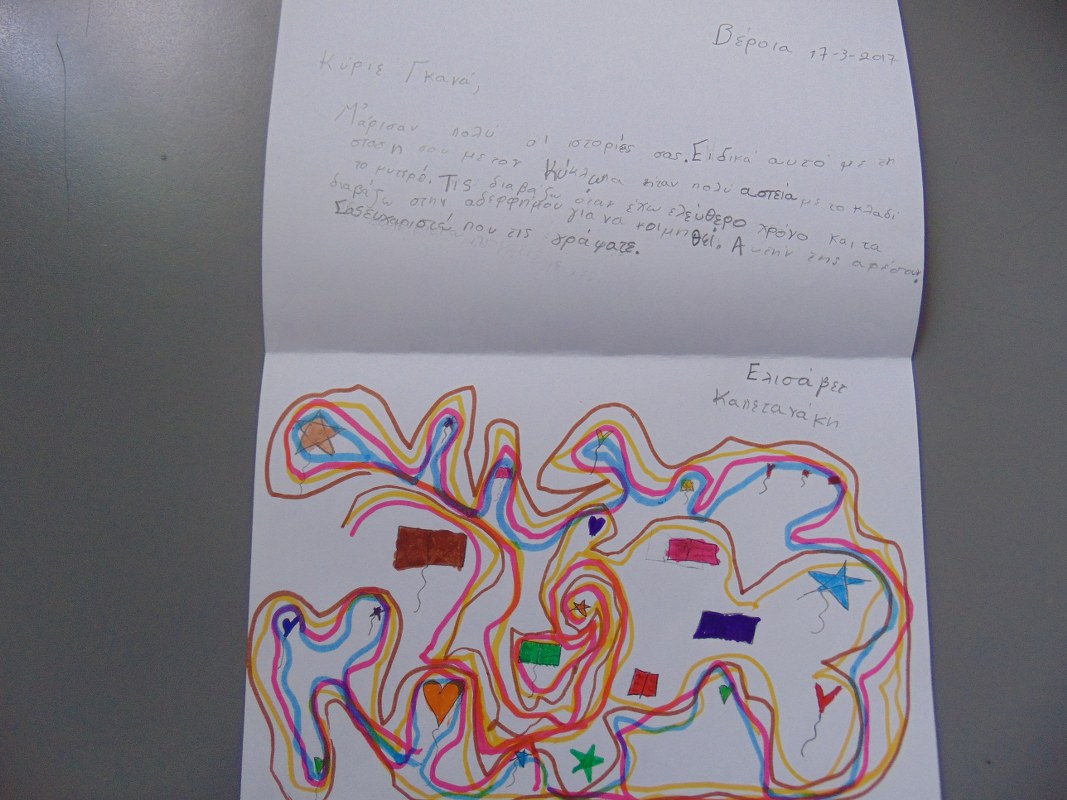 Βέροια 17-3-2017
Κύριε Γκανά,
Μ'άρισαν πολύ οι ιστορίες σας. Ειδικά αυτό με τη
στάση του με τον Κύκλωπα ήταν πολύ αστεία με το κλαδί
το μυτερό. Τις διαβάζω όταν έχω ελεύθερο χρόνο και τα
διαβάζω στην αδερφήμου για να κοιμηθεί. Αυτήν της αρέσουν!
Σαςευχαριστώ που τις γράψατε.
Ελισάβετ
Καπετανάκη